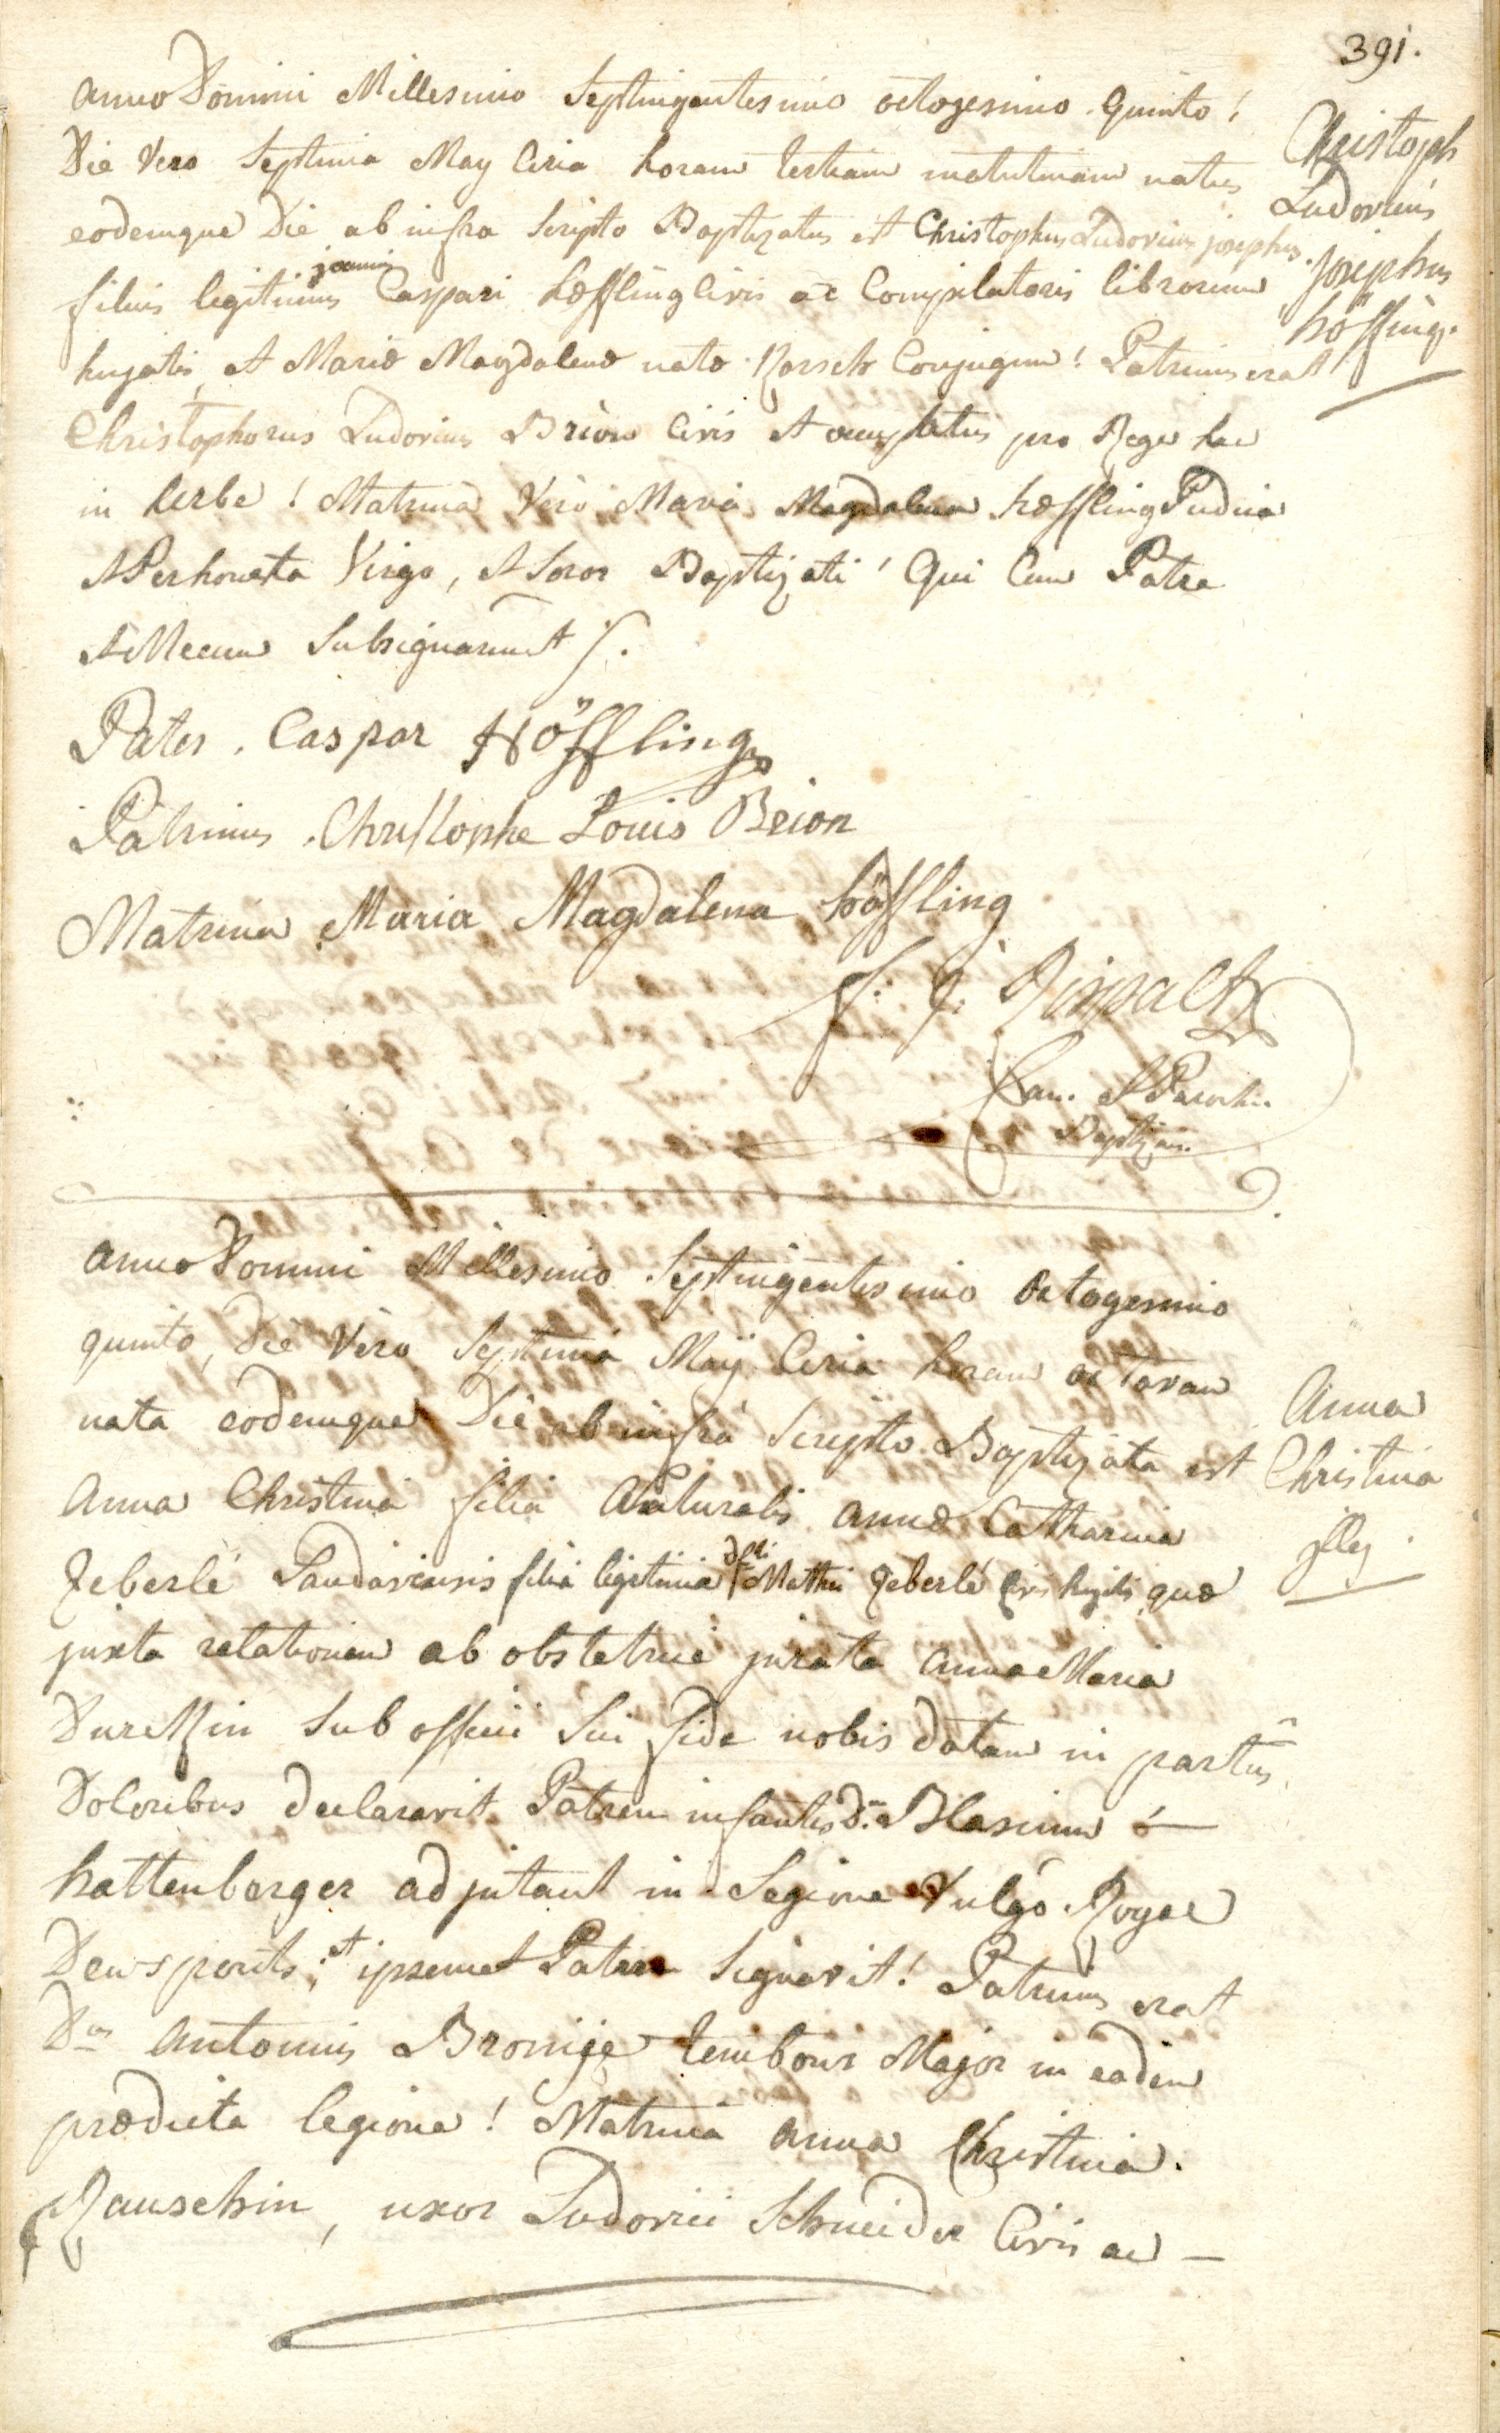 391.
Anno Domini Millesimo Septingentesimo octogesimo quinto!
Die Vero Septima May Circa horam tertiam matutinam natus
eodemque Die ab infra Scripto Baptizatus est Christophus Ludovicus josephus
filius legitimus joannis Caspari Hœffling Civis ac Compilatoris librorum
hujatis, et Mariæ Magdalenæ natæ Conjugum! Patrinus erat
Christophorus Ludovicus Brion Civis et pro Rege hac
in Urbe! Matrina Vero Maria Magdalena hœffling Pudica
et Perhonesta Virgo, et Soror Baptizati! Qui Cum Patre
et Mecum Subsignarunt
Christoph
Ludovicus
josephus
höffling.
Pater. Caspar Höffling
Patrinus. Christophe Louis Brion
Matrina Maria Magdalena höffling
Can. et Paroch.
Baptizans.
Anno Domini Millesimo Septingentesimo Octogesimo
quinto, Die Vero Septima Maij Circa horam octavam
nata eodemque Die ab infra Scripto Baptizata est
Anna Christina filia Naturalis annæ Catharina
Zeberlé Landaviensis filia legitima dfti Mathei Zeberlé Civis hujatis, quæ
juxta relationem ab obstetrice jurata anna Maria
sub officii Sui fide nobis datam in partus
Doloribus declaravit Patrem infantis D. Blasium
hattenberger adjutant in Legione Vulgo Royal
Deuxponts; et ipsemet Pater Signavit! Patrinus erat
Dnus Antonius Tambour Major in eadem
prædicta legione! Matrina anna Christina
Rauschin, uxor Ludovici Schneider Civis ac
Anna
Christina
illeg.